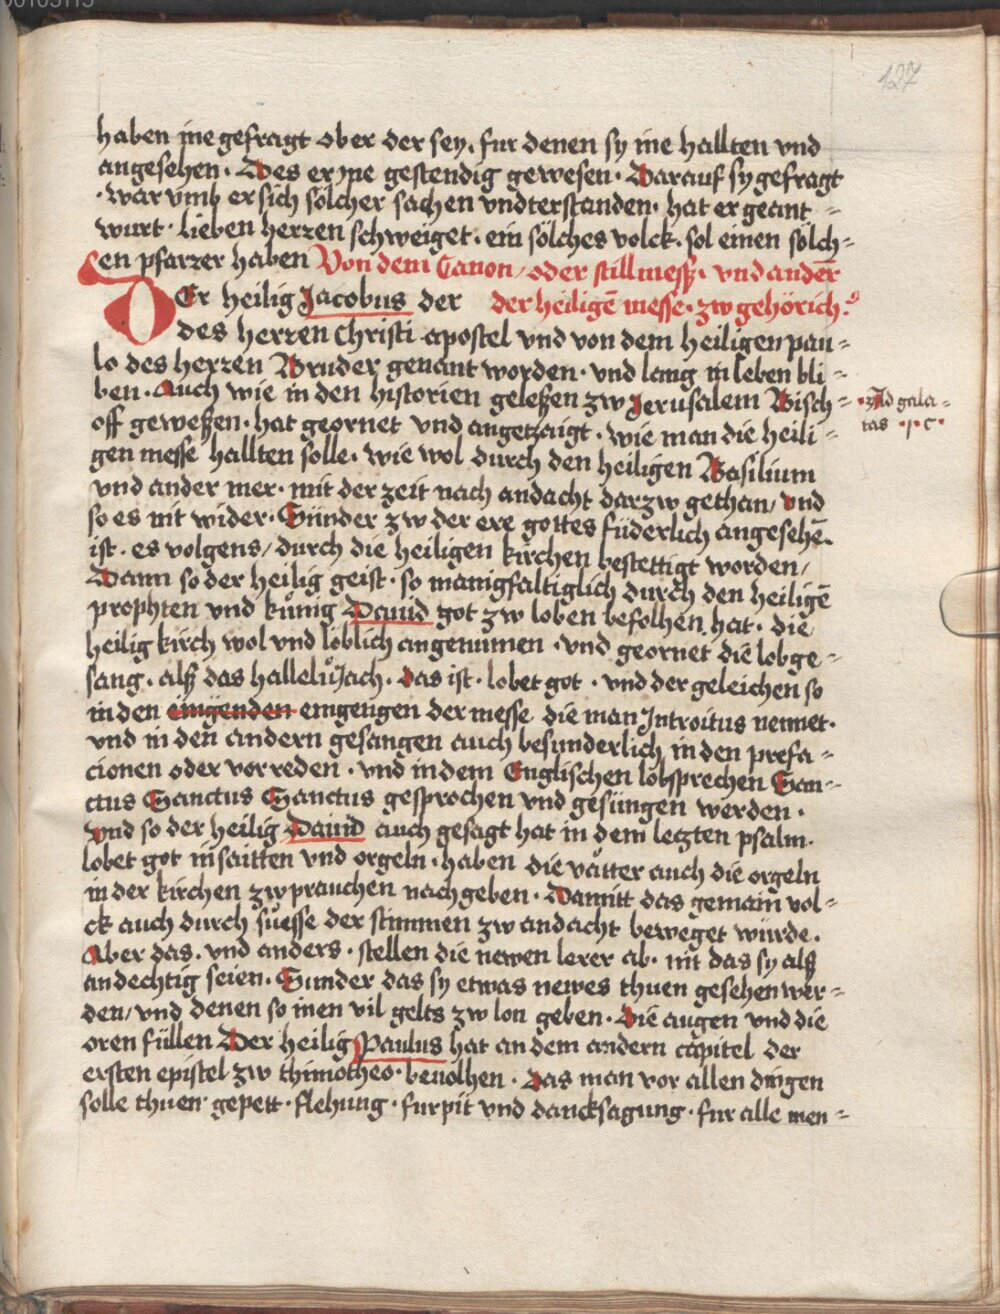 127
haben jne gefragt ober der sey, fur denen sy jne hallten vnd
angesehen. Des er jne gestendig gewesen. Darauf sy gefragt
. war vmb er sich sölcher sachen vndterstanden. hat er geant =
wurt. lieben herren schweiget. ein sölches volck. sol einen sölch =
en pfarrer haben Von dem Canon / oder stillmesß. vnd ander̄
DEr heilig Jacobus der der heiligē messe. zw gehörich.
des herren Christi apostel vnd von dem heiligen pau =
lo des herren Bruder genant worden. vnd lang in leben bli =
ben. Auch wie in den historien gelesßen zw Jerusalem Bisch =
.Ad gala =
tas .1. c.
off gewesßen. hat geornet vnd angetzaigt. wie man die heili =
gen messe hallten solle. wie wol durch den heiligen Basilium
vnd ander mer. mit der zeit nach andacht darzw gethan / vnd
so es nit wider. Sünder zw der ere gottes füderlich angesehē.
ist. es volgens / durch die heiligen kirchen bestettigt worden /
Dann so der heilig geist. so manigfaltiglich durch den heiligē
prophten vnd kunig Dauid got zw loben befolhen hat. die
heilig kirch wol vnd löblich angenumen. vnd geornet die lobge =
sang. alß das hallelůJach. das ist. lobet got. vnd der geleichen so
in den eingenden eingengen der messe die man Jntroitus nennet.
vnd in den andern gesangen auch besunderlich in den prefa =
cionen oder vorreden. vnd in dem Englischen lobsprechen San =
ctus Sanctus Sanctus gesprochen vnd gesüngen werden.
vnd so der heilig Dauid auch gesagt hat in dem letzten psalm.
lobet got in saitten vnd orgeln. haben die vätter auch die orgeln
in der kirchen zw prauchen nachgeben. Damitt das gemain vol =
ck auch durch suesse der stimmen zw andacht beweget würde.
Aber das. vnd anders. stellen die newen lerer ab. nit das sy alß
andechtig seien. Sunder das sy etwas newes thuen gesehen wer =
den / vnd denen so inen vil gelts zw lon geben. Die augen vnd die
oren füllen Der heilig Paulus hat an dem andern capitel der
ersten epistel zw thimotheo. beuolhen. Das man vor allen dingen
solle thuen gepett. flehung. furpit vnd dancksagung. fur alle men =